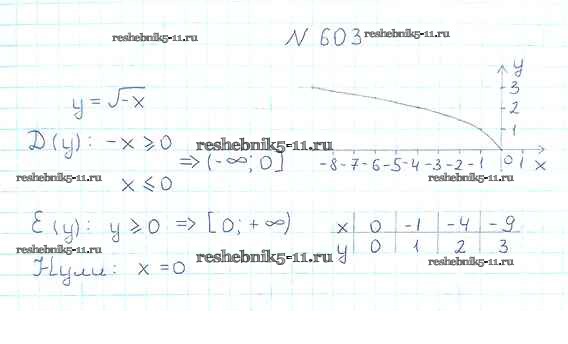 reshebnik5-11.ru N 603 reshebnik5-11.ru
y
3
2
1
-8 -7 -6 -5 -4 -3 -2 -1 0 1 x
y = √-x
D(y): -x ⩾ 0 reshebnik5-11.ru
⇒ (-∞; 0]
reshebnik5-11.ru x ⩽ 0 reshebnik5-11.ru
E(y): y ⩾ 0 ⇒ [0; +∞)
x 0 -1 -4 -9
y 0 1 2 3
reshebnik5-11.ru reshebnik5-11.ru reshebnik5-11.ru
Нули: x = 0